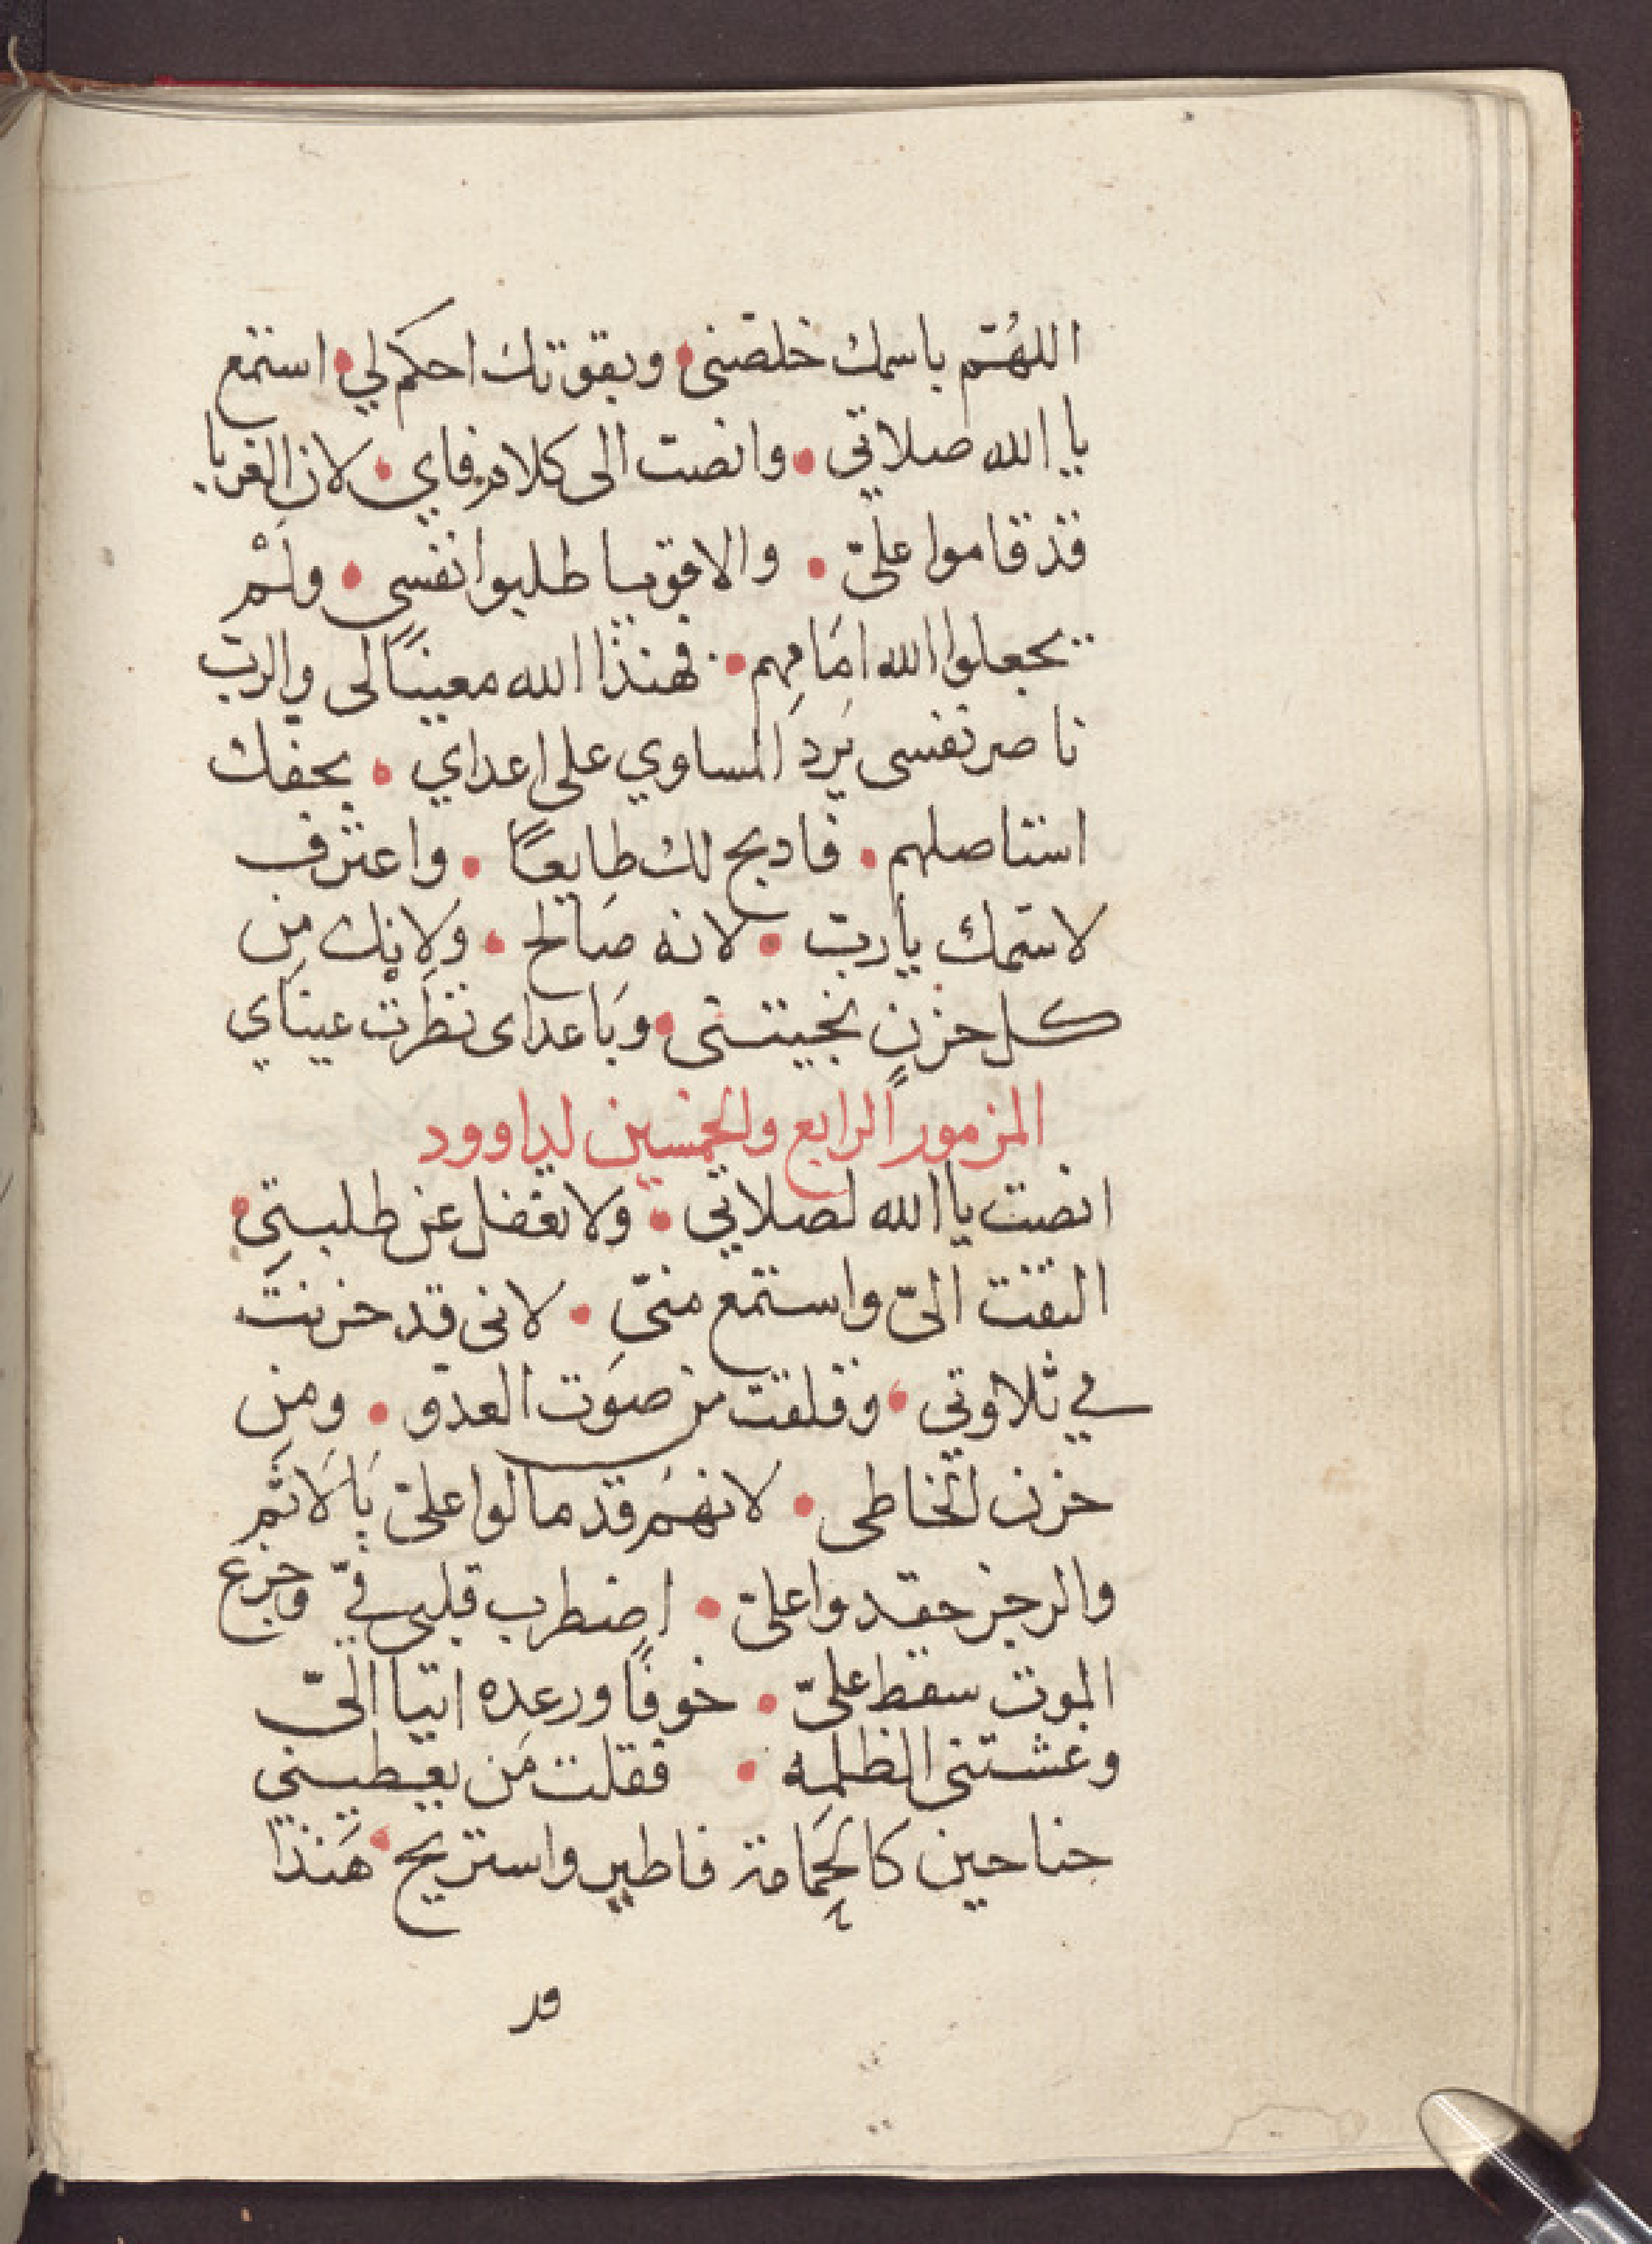 اللهُمّ باسمك خلصنى • وبقوتك احكم لي • استمع
يا الله صلاتي • وانصت الى كلام فاي • لان الغربا
قد قاموا علىّ • والاقويا طلبوا نفسى • ولَمْ
يجعلوا الله امَامِهم • فهذا الله معينًا لى والرب
ناصر نفسى يَرد المساوي على اعداي • بحقك
استاصلهم • فادبح لك طايعًا • واعترف
لاسمك يارب • لانه صَالح • ولانك مِن
كل حزنٍ نجيتنى • وبَاعداى نظرت عيناي
المزمور الرابع والخمسين لداوود
انصت يا الله لصلاتي • ولا تغفل عن طلبتي •
التفت الىّ واستمع منىّ • لانى قد حزنت
في تلاوتي • وقلقت من صوَت العدو • ومن
حزن الخاطى • لانهم قد مالوا علىّ بَالَاثم
والرجز حقدوا علىّ • اضطرب قلبى فىّ وجزع
الموت سقط علىّ • خوفًا ورعده اتيا الىّ
وغشتنى الظلمه • فقلت مَن يعطينى
جناحين كالحِمَامة فاطير واستريح • هَذا